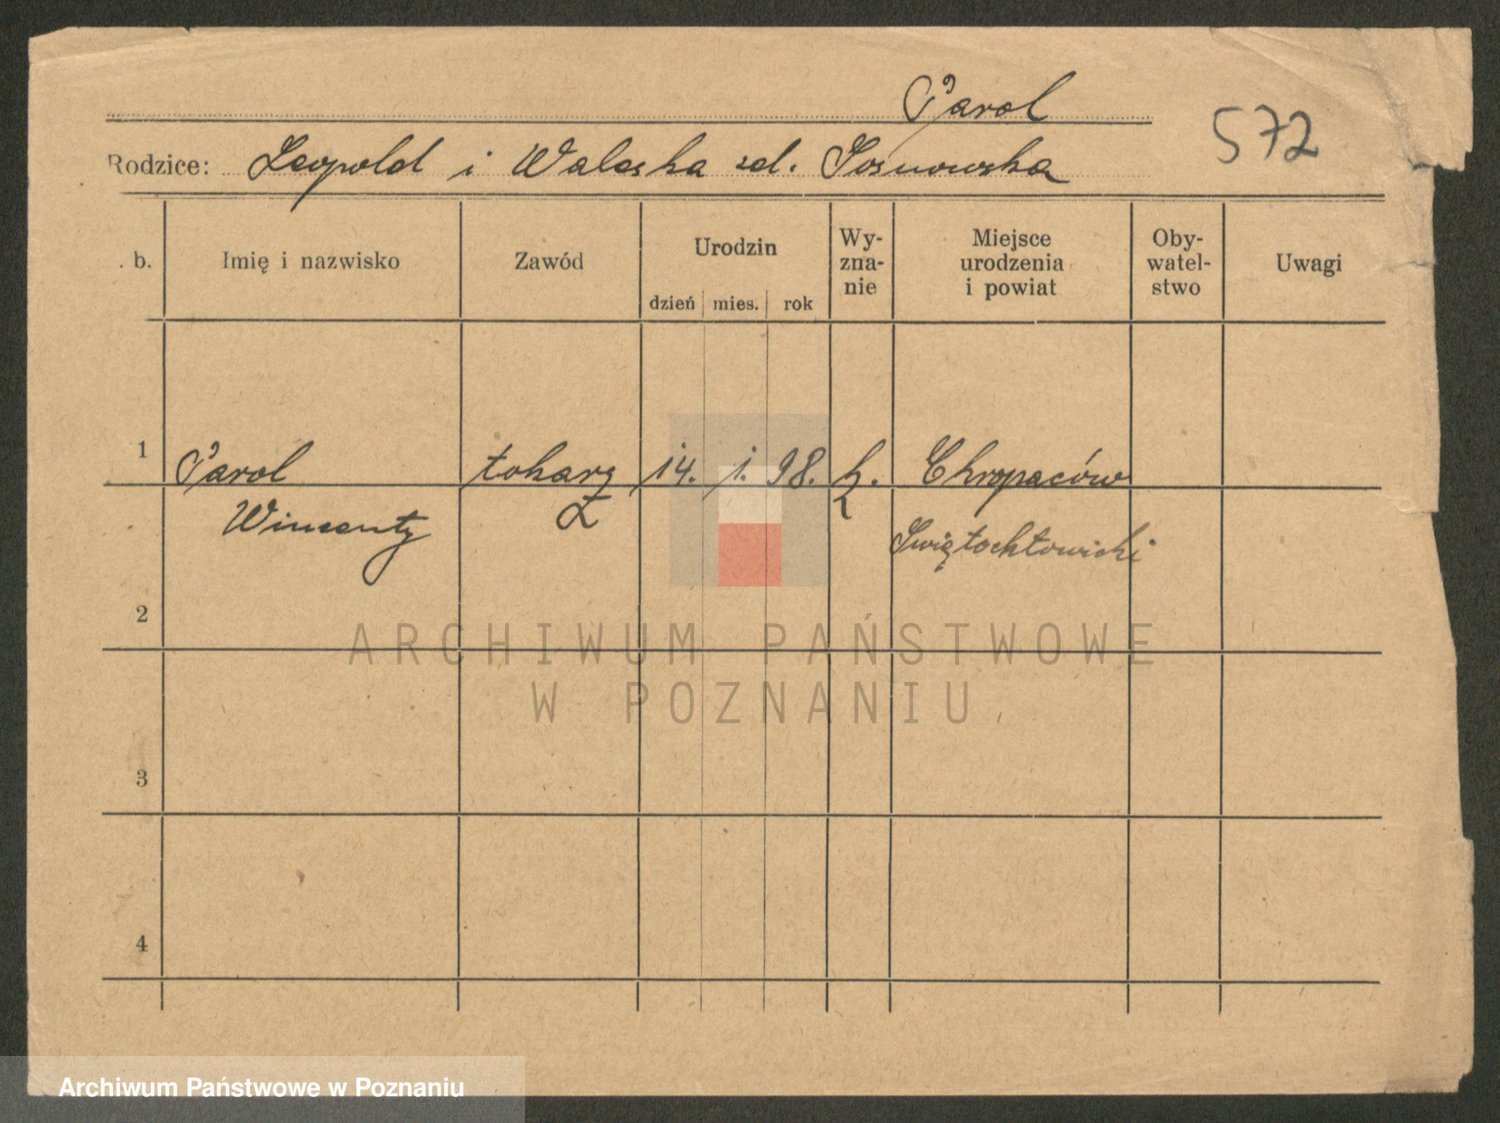 Parol
572
Rodzice: Leopold i Waleska zd. Sosnowska
. b. Imię i nazwisko Zawód Urodzin Wy- Miejsce Oby- Uwagi
zna- urodzenia watel-
nie i powiat stwo
dzień mies. rok
1 Parol tokarz 14. 1. 98. k. Chropaców
Wincenty Świętochłowicki
2
ARCHIWUM PAŃSTWOWE
W POZNANIU
3
4
Archiwum Państwowe w Poznaniu